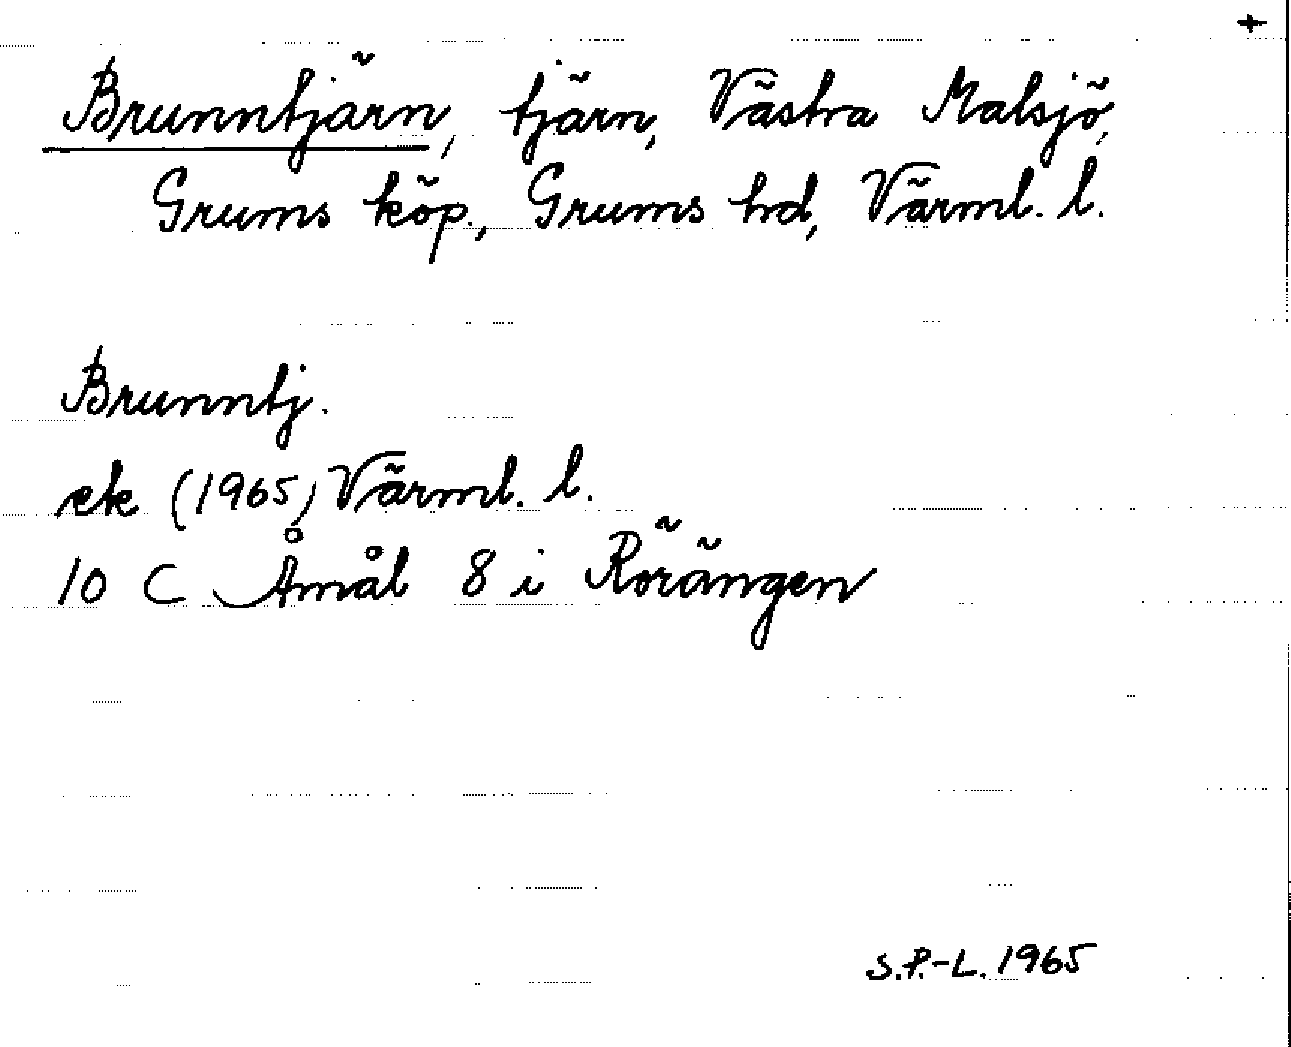 +
Brunntjärn, tjärn, Västra Malsjö,
Grums köp., Grums hd, Värml. l.
Brunntj.
ek (1965) Värml. l.
10 C Åmål 8 i Rörängen
S.P.-L. 1965